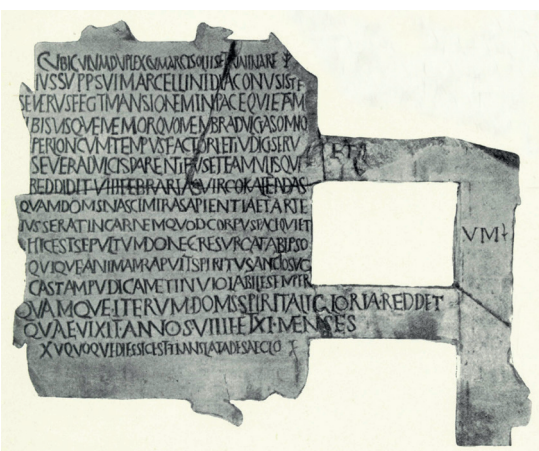 CVBICVLVM DVPLEX CVM ARCISOLIIS ET LVMINARE
IVSSV PP SVI MARCELLINI DIACONVS ISTE
SEVERVS FECIT MANSIONEM IN PACE QVIETAM
IBI SVISQVE MEMOR QVO MEMBRA DVLCIA SOMNO
PER LONGVM TEMPVS FACTORI ET IVDICI SERV
SEVERA DVLCIS PARENTIBVS ET FAMVLISQVI
REDDIDIT VIII FEBRARIAS VIRGO KALENDAS
QVAM DOMS NASCI MIRA SAPIENTIA ET ARTE
IVSSERAT IN CARNEM QVOD CORPVS PACI QVIET VM
HIC EST SEPVLTVM DONEC RESVRGAT AB IPSO
QVIQVE ANIMAM RAPVIT SPIRITV SANCTO SVO
CASTAM PVDICAM ET INVIOLABILE SEMPER
QVAMQVE ITERVM DOMS SPIRITALI GLORIA REDDET
QVAE VIXIT ANNOS VIIII ET XI MENSES
XV QVOQVE DIES SIC EST TRANSLATA DE SAECLO